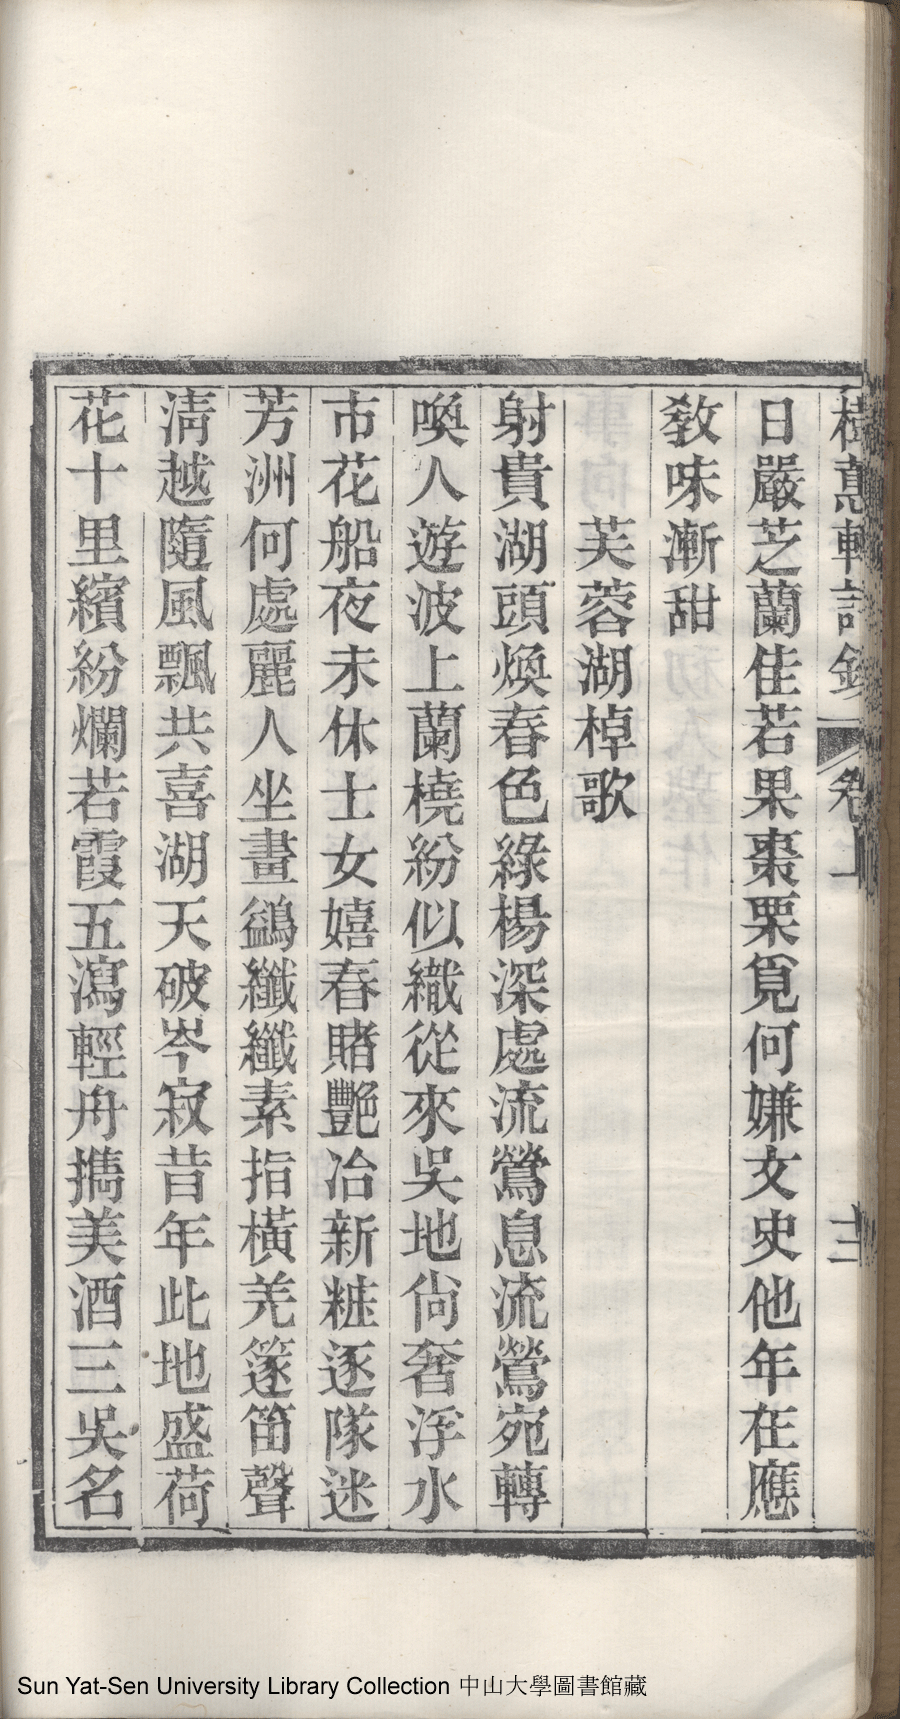 日嚴芝蘭佳若果棗栗覓何嫌文史他年在應
敎味漸甜
芙蓉湖棹歌
射貴湖頭煥春色綠楊深處流鶯息流鶯宛轉
喚人遊波上蘭橈紛似織從來吳地尙奢浮水
市花船夜未休士女嬉春賭艷冶新粧逐隊迷
芳洲何處麗人坐畫鷁纖纖素指橫羌篴笛聲
淸越隨風飄共喜湖天破岑寂昔年此地盛荷
花十里繽紛爛若霞五瀉輕舟攜美酒三吳名
Sun Yat-Sen University Library Collection 中山大學圖書館藏